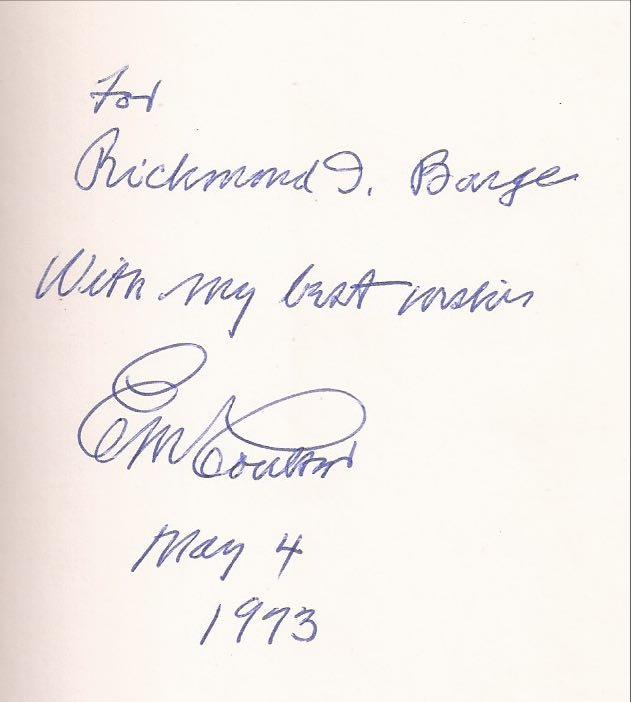 For
Richmond I. Barge
With my best wishes
E M Coulter
May 4
1973